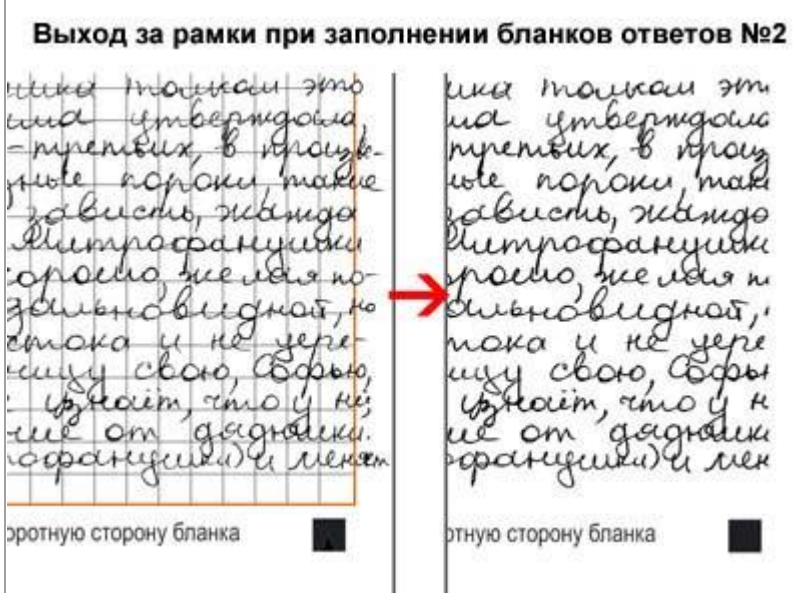 Выход за рамки при заполнении бланков ответов №2
толкаш это
утверждала,
-третьих, в произве-
ные пороки, такие
зависть, жажда
Митрофанушки
орошо, желая по-
зальновидной, но
стока и не уере-
ницу свою, Софью,
узнаёт, что у неё
от дядюшки.
рофанушки) и менят
оротную сторону бланка
эти
утвержdала
третьих, в произ
ные пороки, таки
зависть, жаждо
Митрофанушки
орошо, желая п
альновидной,
тока и не уере
ицу свою, Софью
узнаёт, что у н
ие от дядюшки
офанушки) и мен
отную сторону бланка